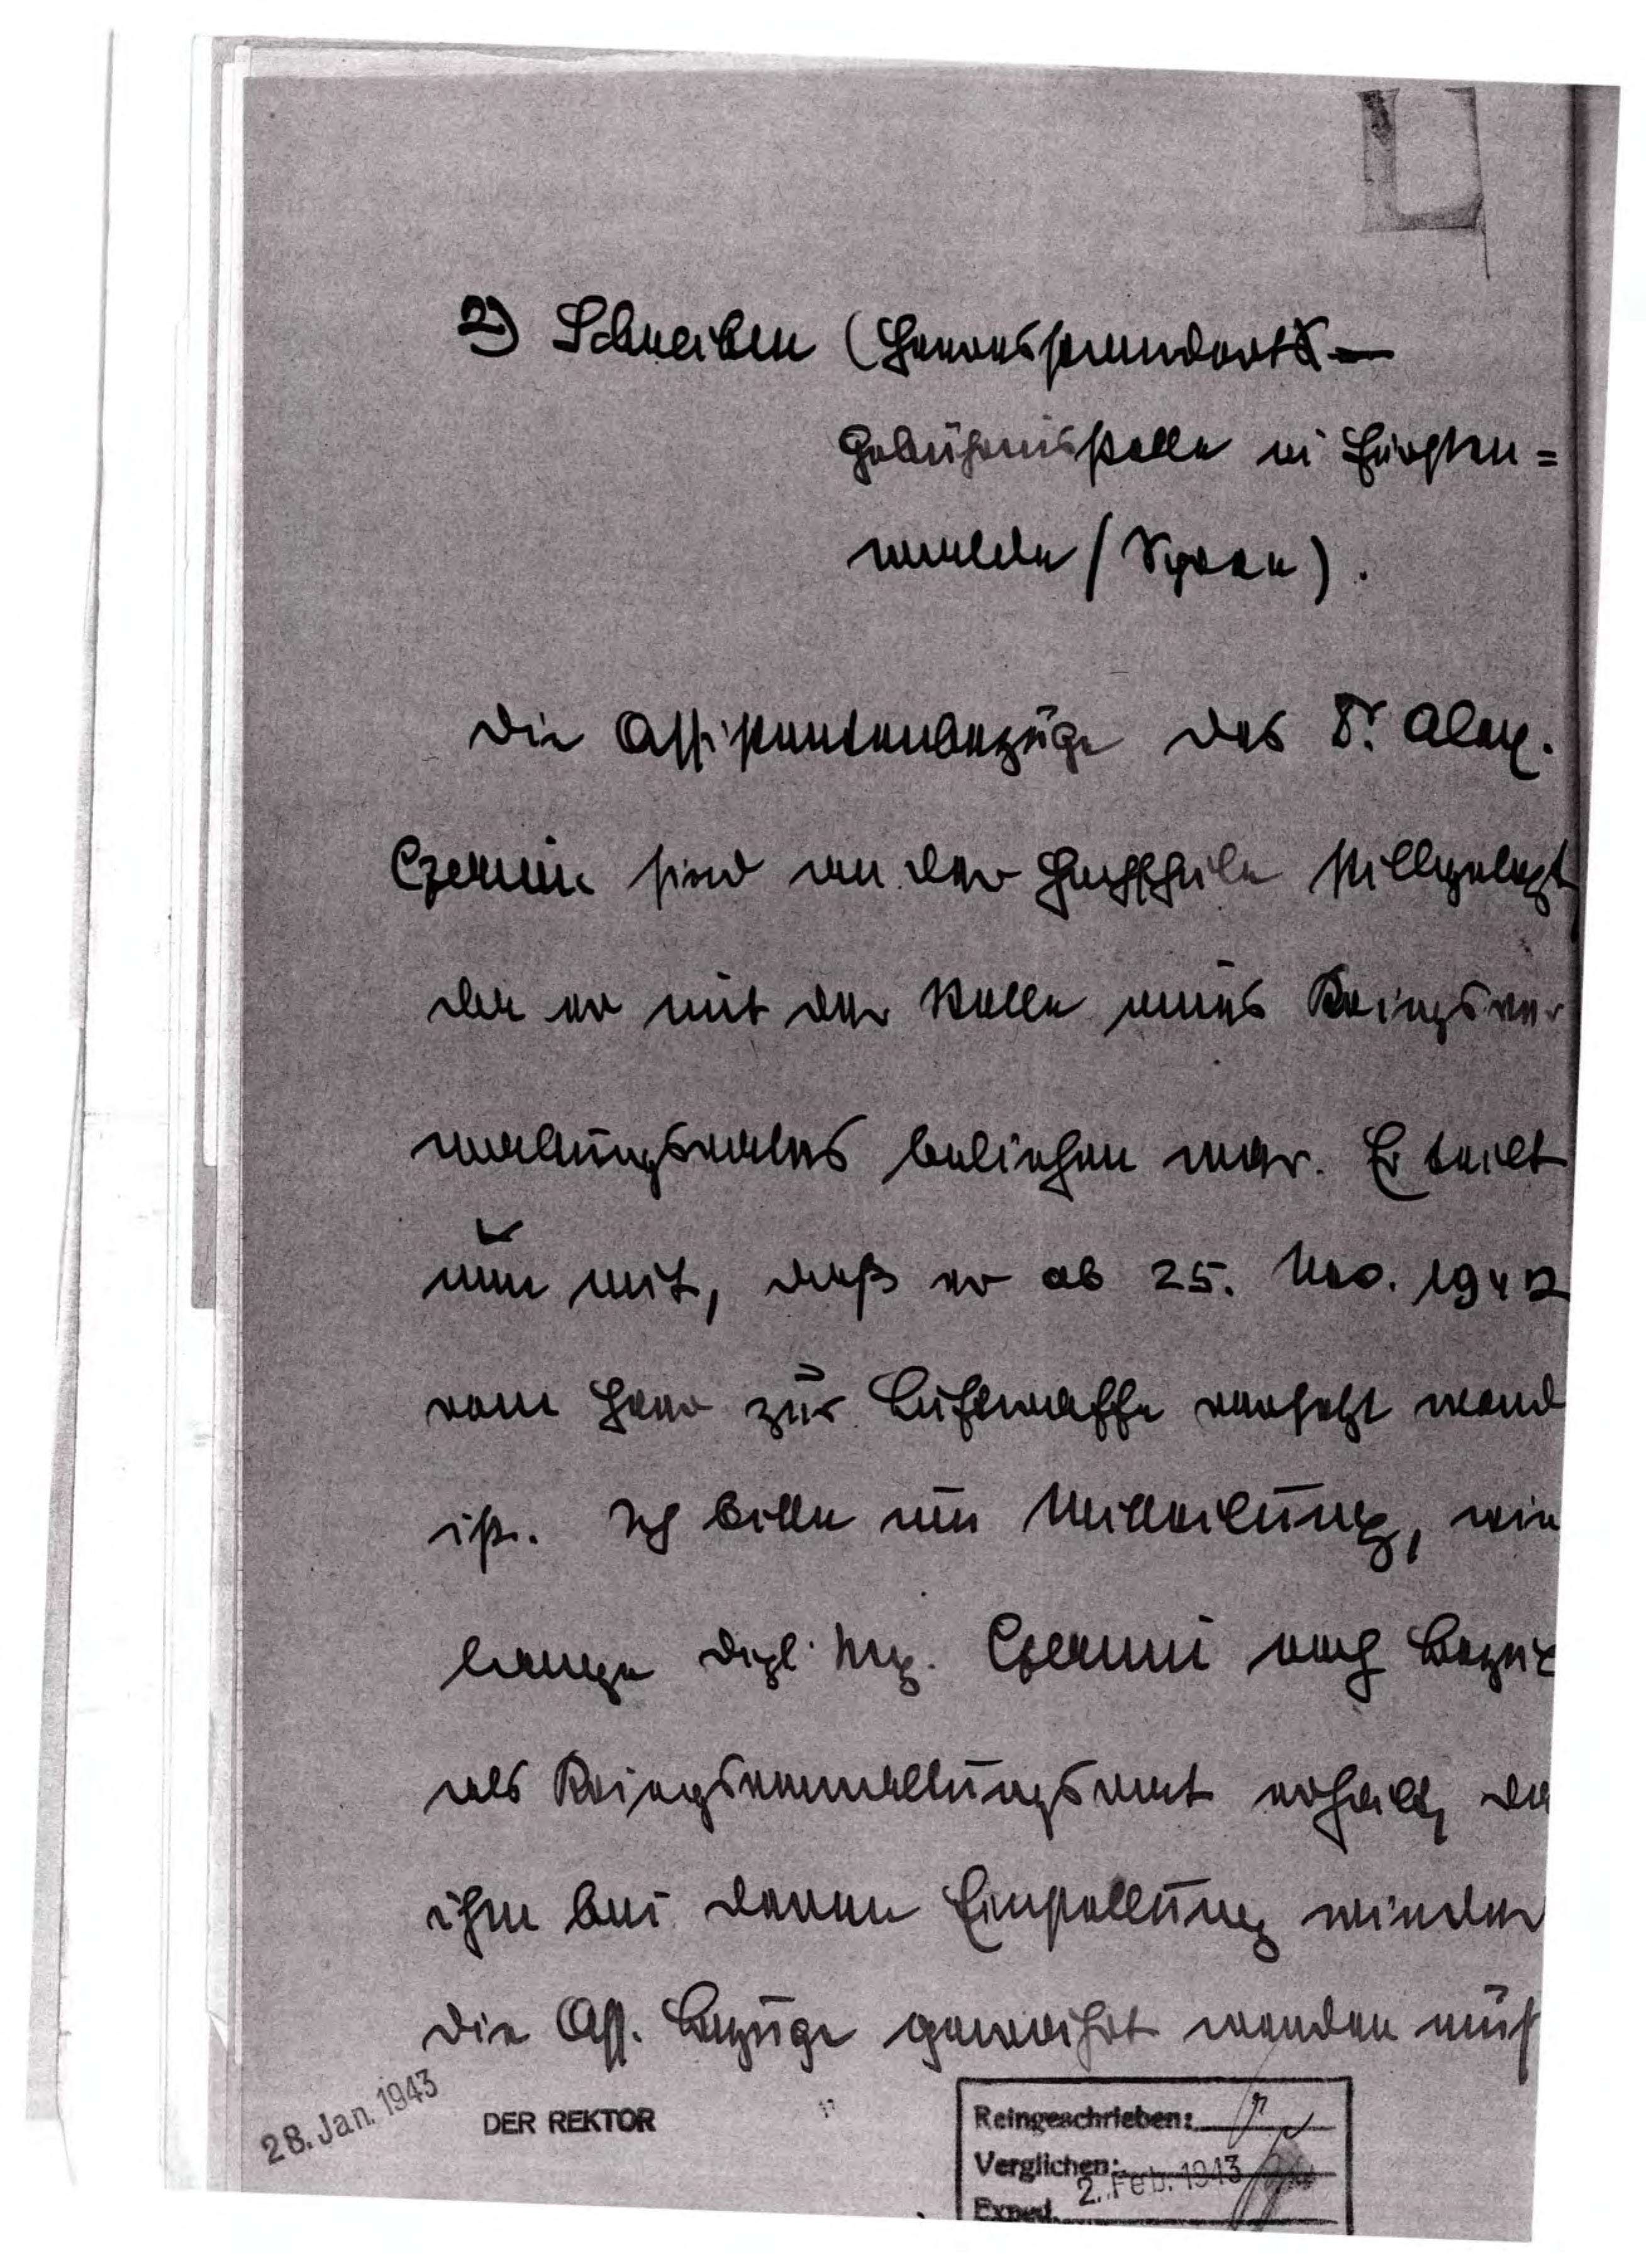 2) Schreiben (Heeresstandorts-
Gebührnisstelle in Fürsten=
walde / Spree).
Die Assistentenbezüge des Dr. Alex.
Czernin sind an der Hochschule stillgelegt,
da er mit der Stelle eines Reichsver
waltungsrates beliehen war. Er teilt
nun mit, daß er ab 25. Nov. 1942
vom Heer zur Luftwaffe versetzt word
ist. Ich bitte um Mitteilung, wie
lange Dipl. Ing. Czernin noch Bezüge
als Reichsverwaltungsrat erhält, da
ihm bei deren Einstellung wieder
die Ass. Bezüge gewährt werden müs
28. Jan. 1943
DER REKTOR
Reingeschrieben:
Verglichen:
2. Feb. 1943
Exped.